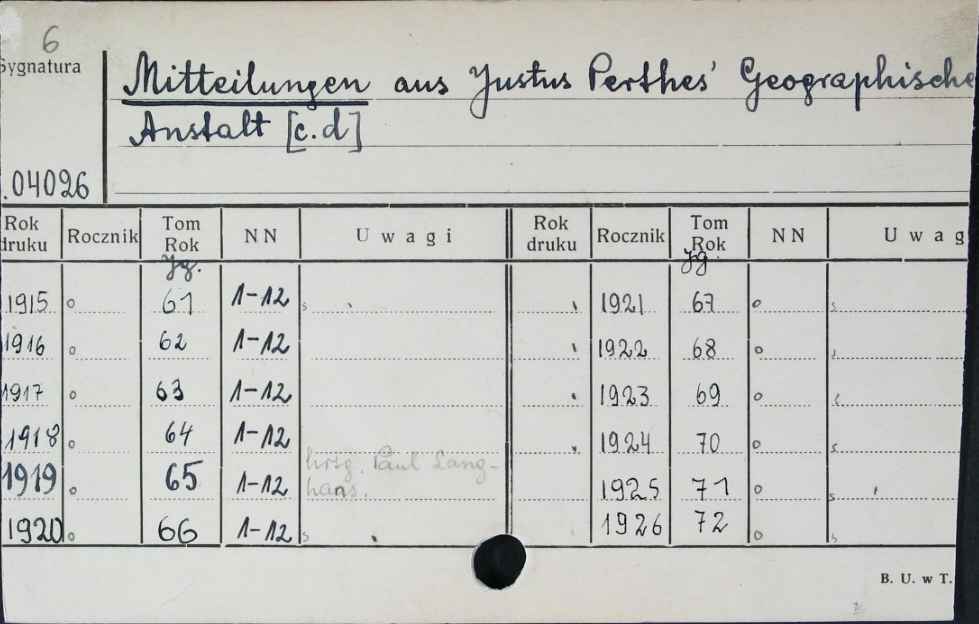 6
Sygnatura
Mitteilungen aus Justus Perthes' Geographische
Anstalt [c.d]
.04026
Rok druku Rocznik Tom Rok NN Uwagi Rok druku Rocznik Tom Rok NN Uwag
Jg. Jg.
1915 61 1-12 1921 67
1916 62 1-12 1922 68
1917 63 1-12 1923 69
1918 64 1-12 1924 70
1919 65 1-12 hrsg. Paul Lang-
hans. 1925 71
1920 66 1-12 1926 72
B. U. w T.